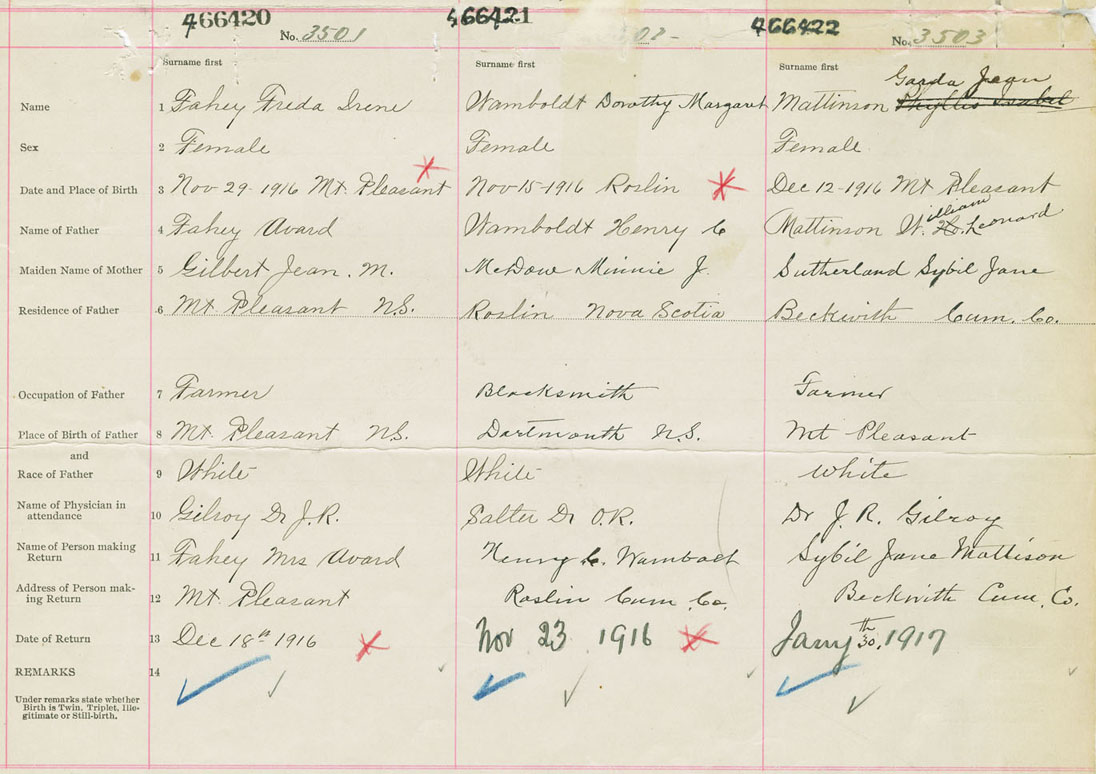 466420 466421 466422
No. 3501 No. 3503
Surname first Surname first Surname first
Garda Jean
Name 1 Fahey Freda Irene Wamboldt Dorothy Margaret Mattinson Phyllis Isabel
Sex 2 Female Female Female
Date and Place of Birth 3 Nov 29-1916 Mt. Pleasant Nov 15-1916 Roslin Dec 12-1916 Mt Pleasant
Name of Father 4 Fahey Avard Wamboldt Henry C Mattinson William Leonard
Maiden Name of Mother 5 Gilbert Jean. M. McDow Minnie J. Sutherland Sybil Jane
Residence of Father 6 Mt Pleasant N.S. Roslin Nova Scotia Beckwith Cum. Co.
Occupation of Father 7 Farmer Blacksmith Farmer
Place of Birth of Father 8 Mt. Pleasant N.S. Dartmouth N.S. Mt Pleasant
and
Race of Father 9 White White White
Name of Physician in
attendance 10 Gilroy Dr J.R. Salter Dr O.R. Dr J. R. Gilroy
Name of Person making
Return 11 Fahey Mrs Avard Henry C. Sybil Jane Mattison
Address of Person mak-
ing Return 12 Mt. Pleasant Roslin Cum. Co. Beckwith Cum. Co.
Date of Return 13 Dec 18th 1916 Nov 23 1916 Jany 30th, 1917
REMARKS 14
Under remarks state whether
Birth is Twin, Triplet, Ille-
gitimate or Still-birth.